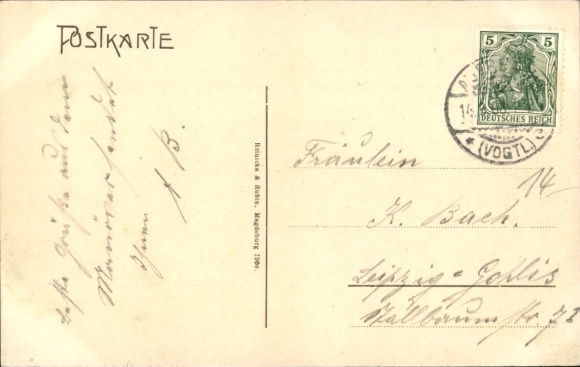 POSTKARTE
Beste Grüße aus dem
Manöver sendet
Ihnen
A B.
Reinicke & Rubin, Magdeburg 190
5 5
DEUTSCHES REICH
(VOGTL.)
Fräulein
14
K. Bach.
Leipzig=Gohlis
Stallbaumstr.